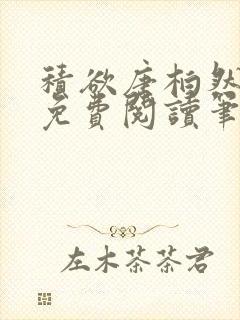 積欲唐柏然
免費閱讀筆
左木茶茶君